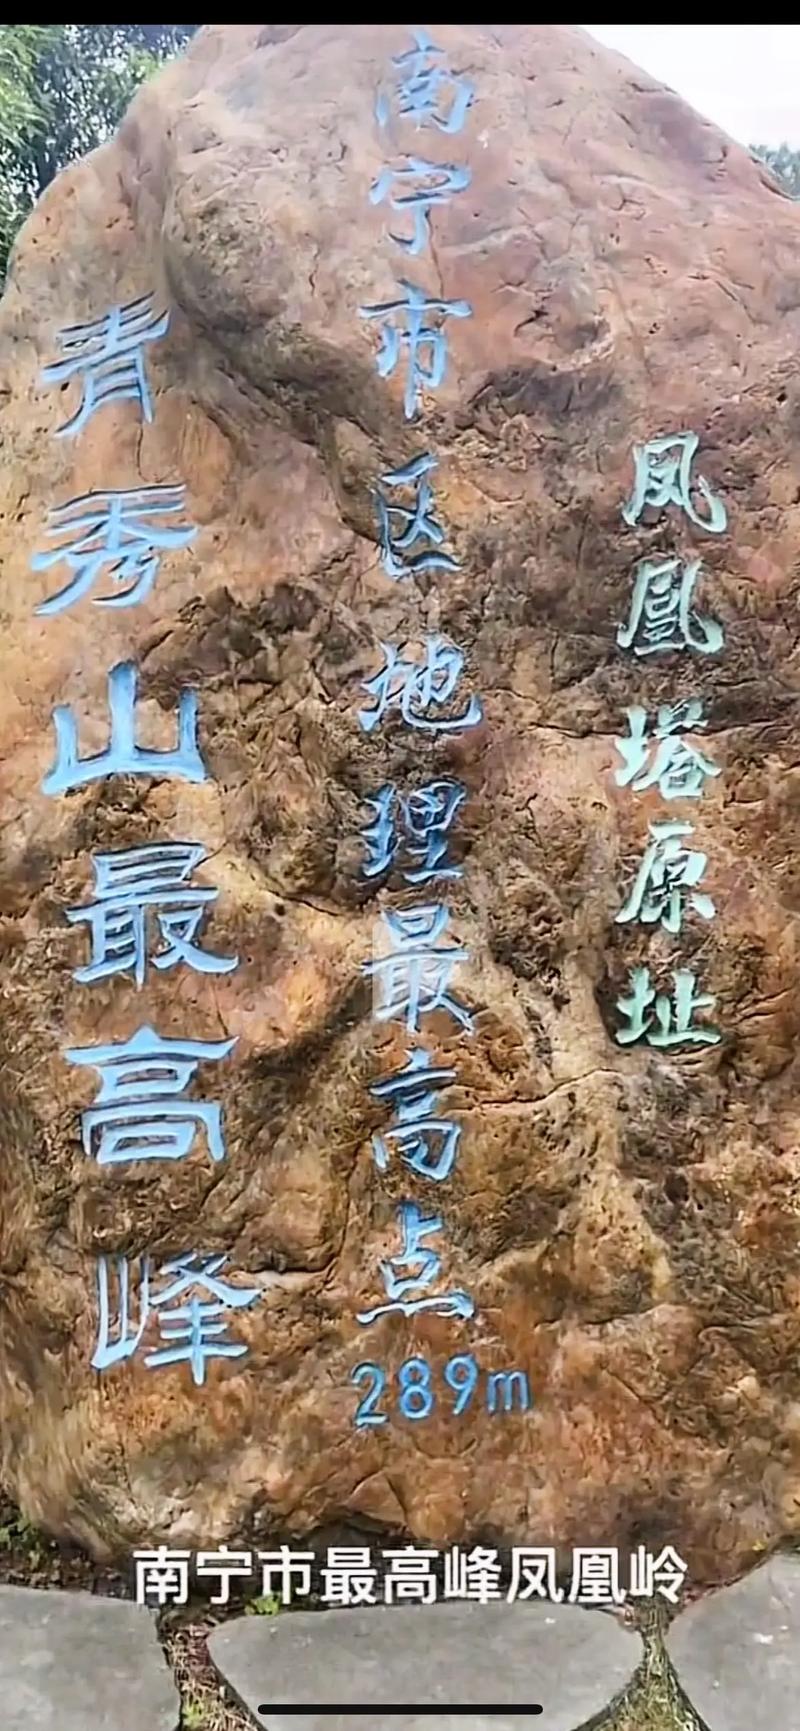 凤凰塔原址
南宁市区地理最高点
289m
青秀山最高峰
南宁市最高峰凤凰岭